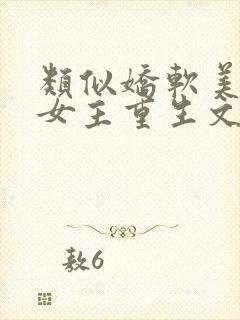 類似嬌軟美
女主重生文
敖6